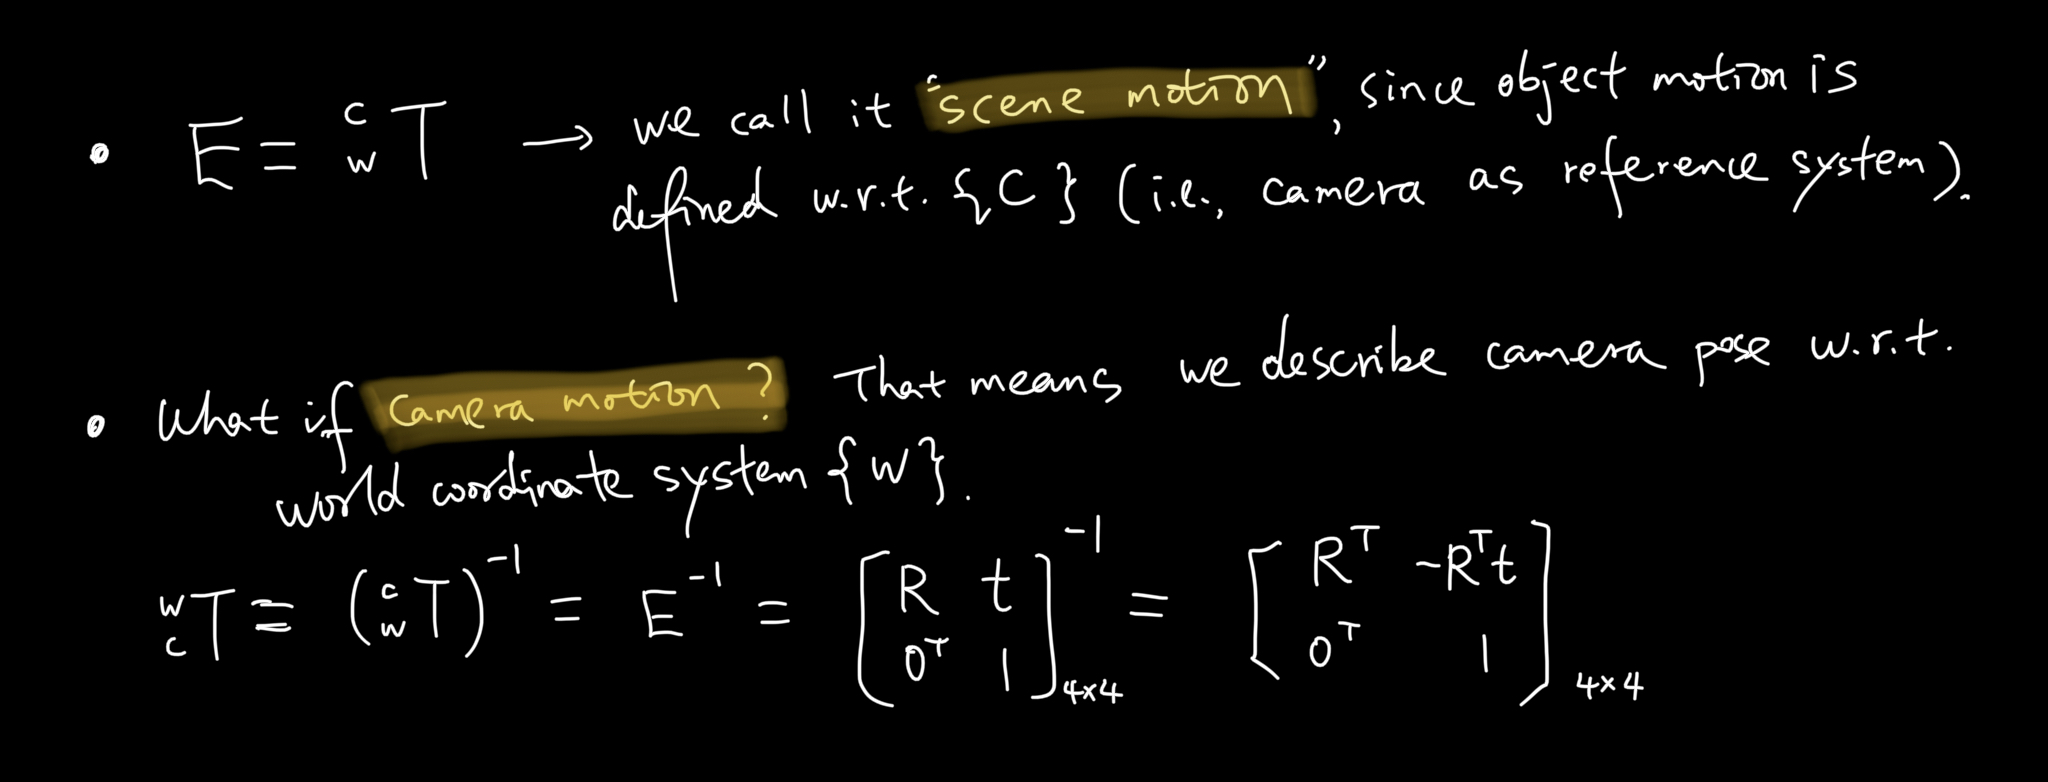 • E = ᶜ_w T → we call it "scene motion", since object motion is
defined w.r.t. {C} (i.e., camera as reference system).
• What if camera motion? That means we describe camera pose w.r.t.
world coordinate system {W}.
ʷ_c T = (ᶜ_w T)⁻¹ = E⁻¹ = [R t; 0ᵀ 1]⁻¹ 4×4 = [Rᵀ -Rᵀt; 0ᵀ 1] 4×4